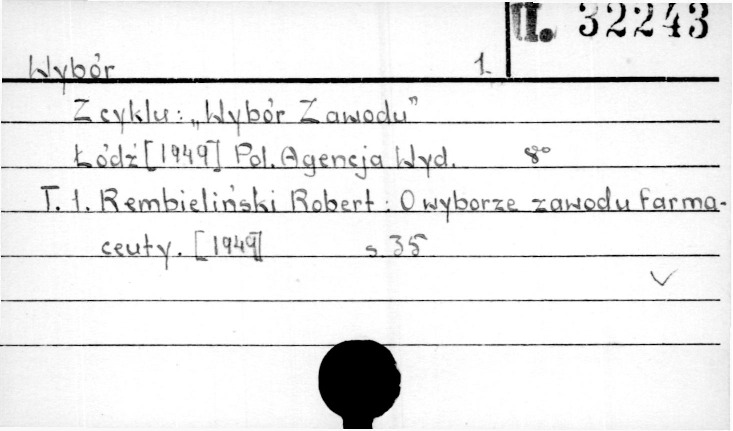 II. 32243
Wybór 1
Z cyklu: „Wybór Zawodu"
Łódź [1949] Pol. Agencja Wyd. 8°
T. 1. Rembieliński Robert: O wyborze zawodu farma-
ceuty. [1949] s. 35